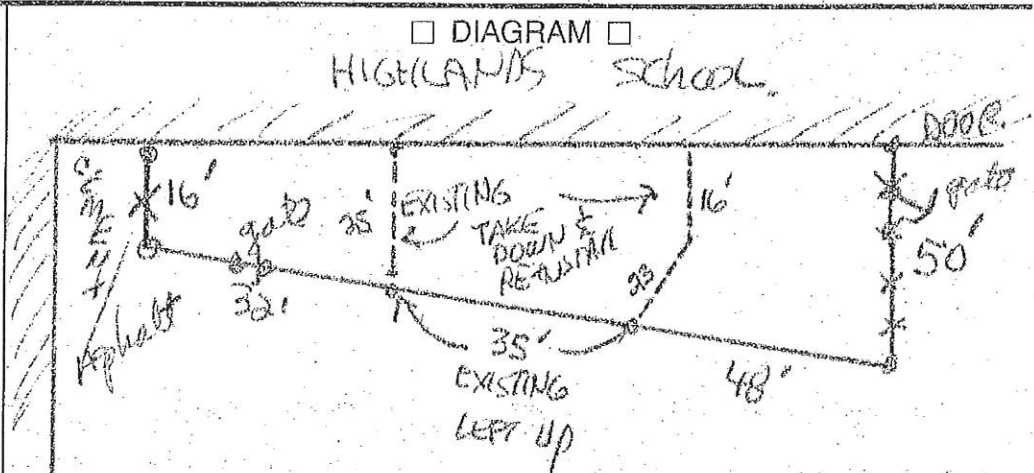 □ DIAGRAM □
HIGHLANDS School.
DOOR.
CEMENT
16'
gate
25'
EXISTING
TAKE
DOWN &
REINSTALL
16'
gate
50'
Asphalt
32'
23
35'
EXISTING
LEFT Up
48'